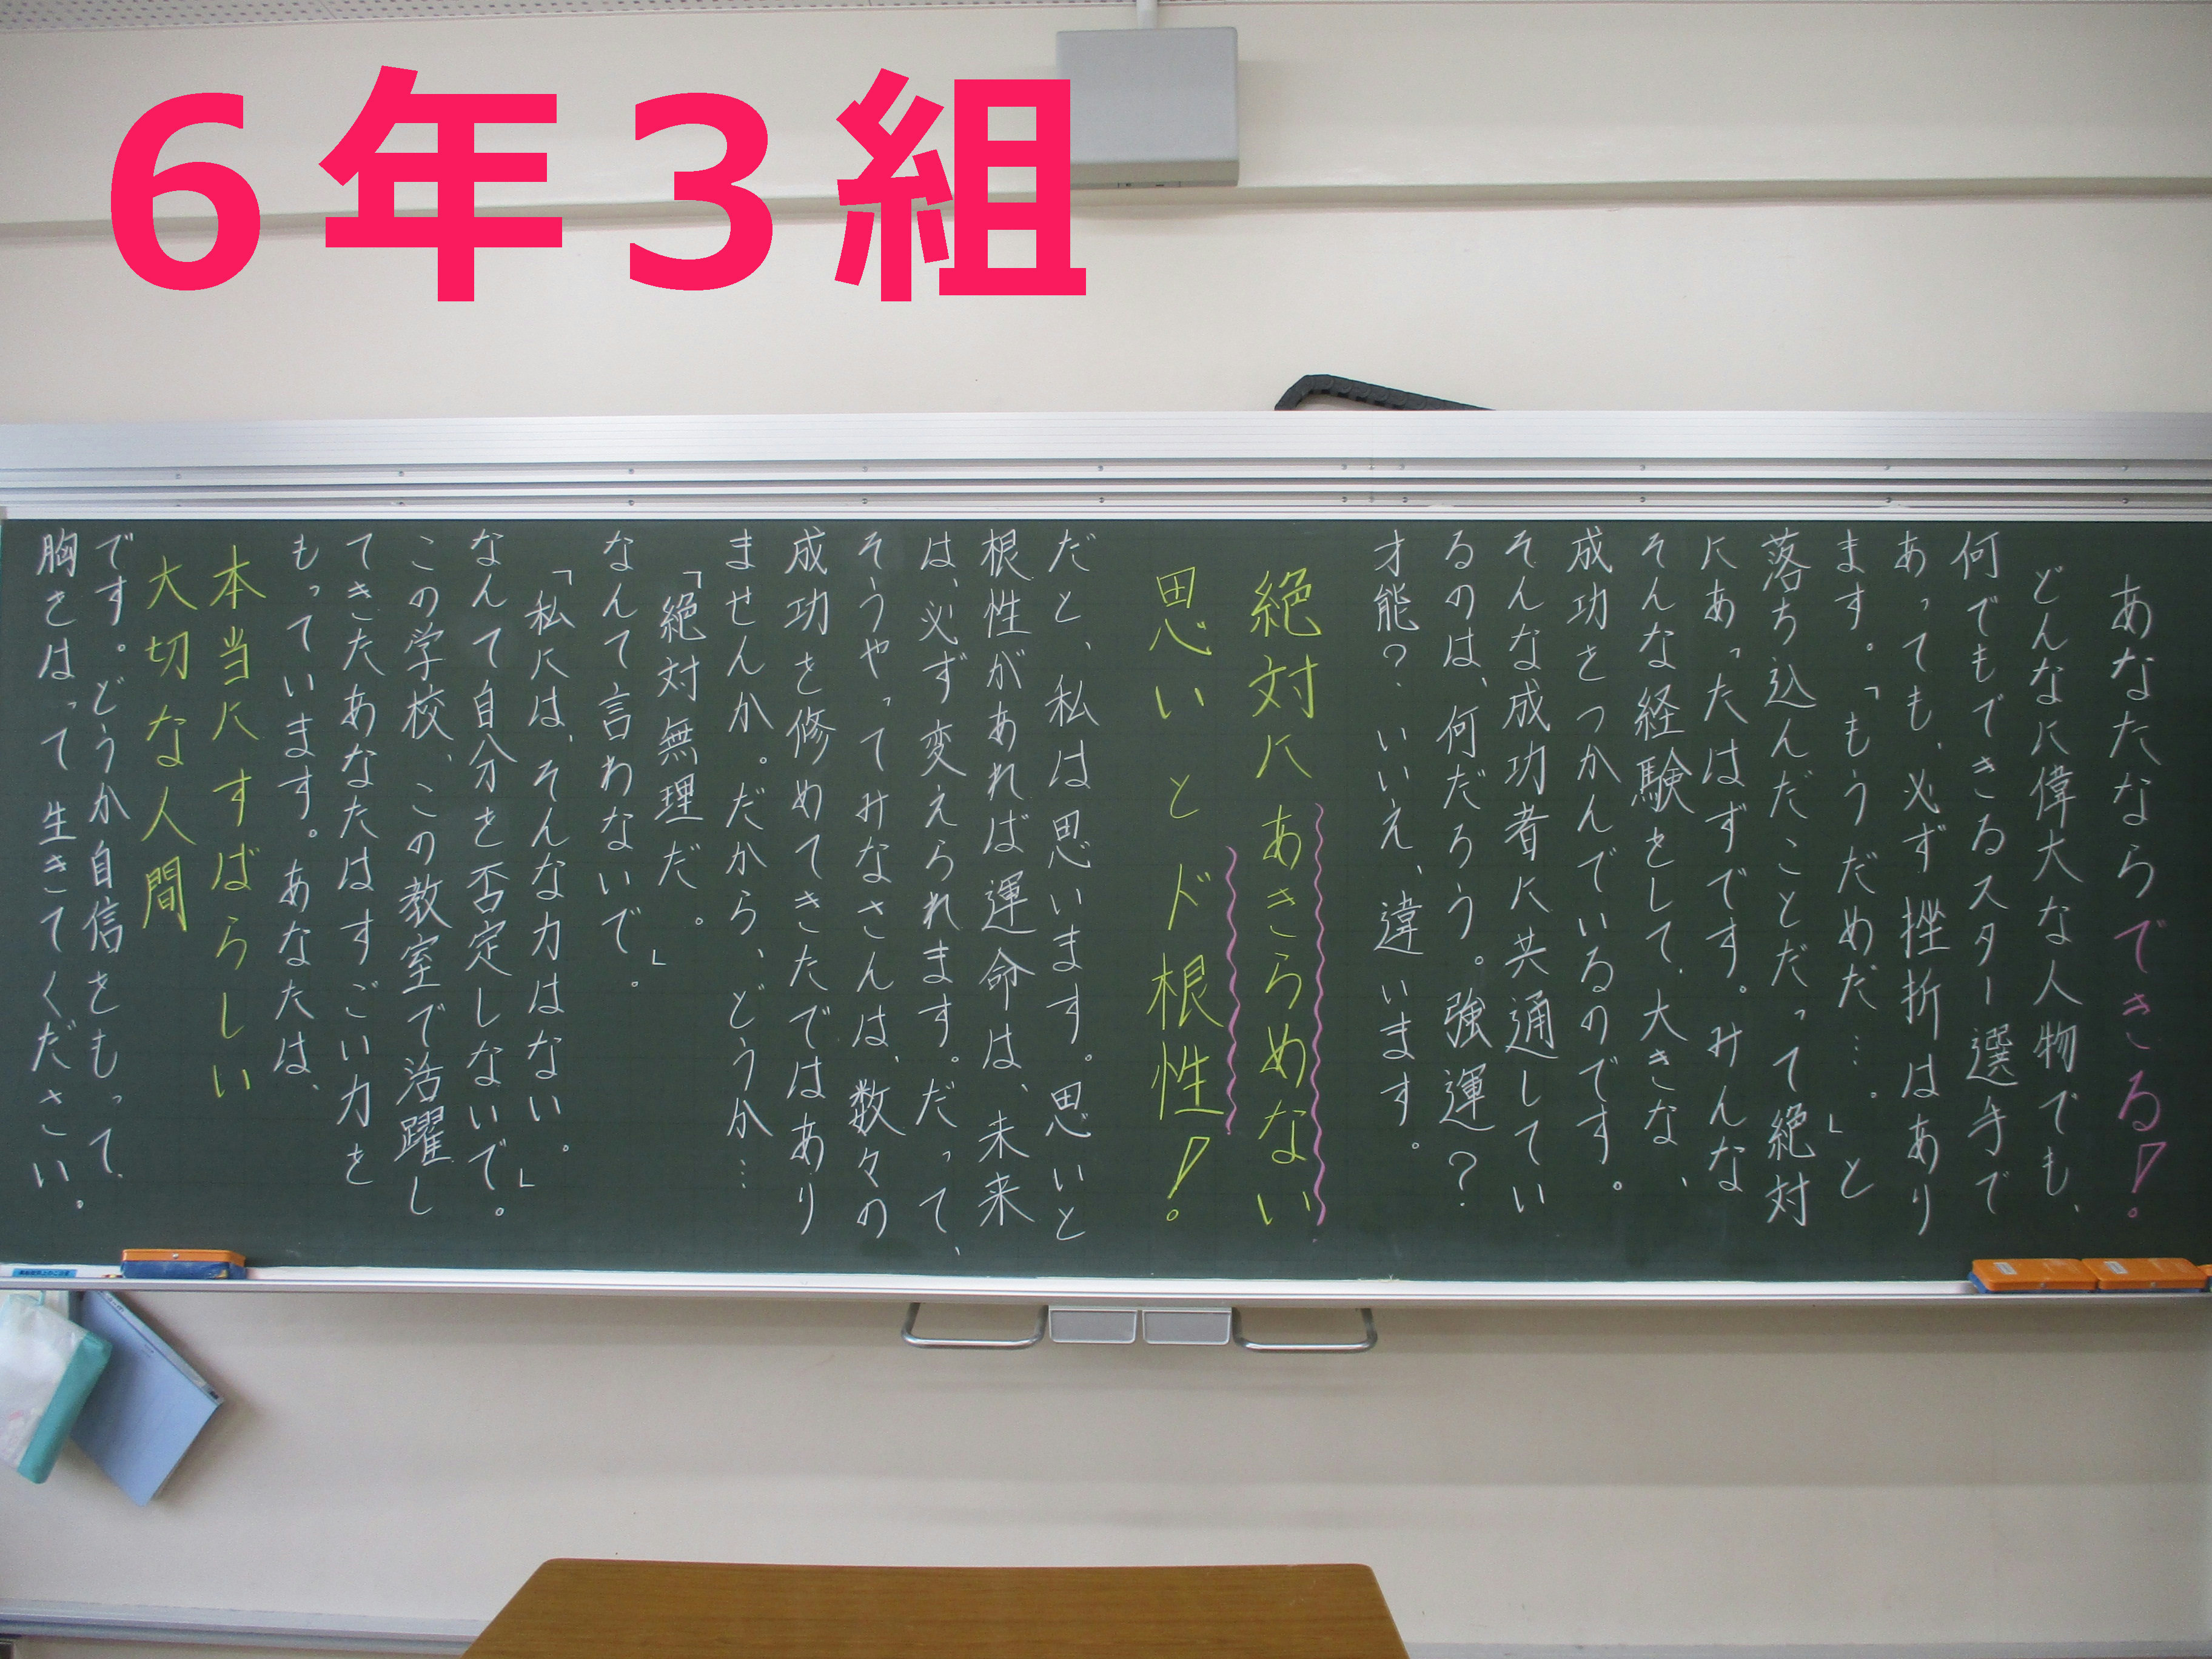 ６年３組
あなたならできる！。
どんなに偉大な人物でも、
何でもできるスター選手で
あっても、必ず挫折はあり
ます。「もうだめだ…。」と
落ち込んだことだって絶対
にあったはずです。みんな
そんな経験をして、大きな、
成功をつかんでいるのです。
そんな成功者に共通してい
るのは、何だろう。強運？
才能？いいえ、違います。
絶対にあきらめない
思いとド根性！。
だと、私は思います。思いと
根性があれば運命は、未来
は、必ず変えられます。だって、
そうやってみなさんは、数々の
成功を修めてきたではあり
ませんか。だから、どうか…
「絶対無理だ。」
なんて言わないで。
「私には、そんな力はない。」
なんて自分を否定しないで。
この学校、この教室で活躍し
てきたあなたはすごい力を
もっています。あなたは、
本当にすばらしい
大切な人間
です。どうか自信をもって、
胸をはって生きてください。